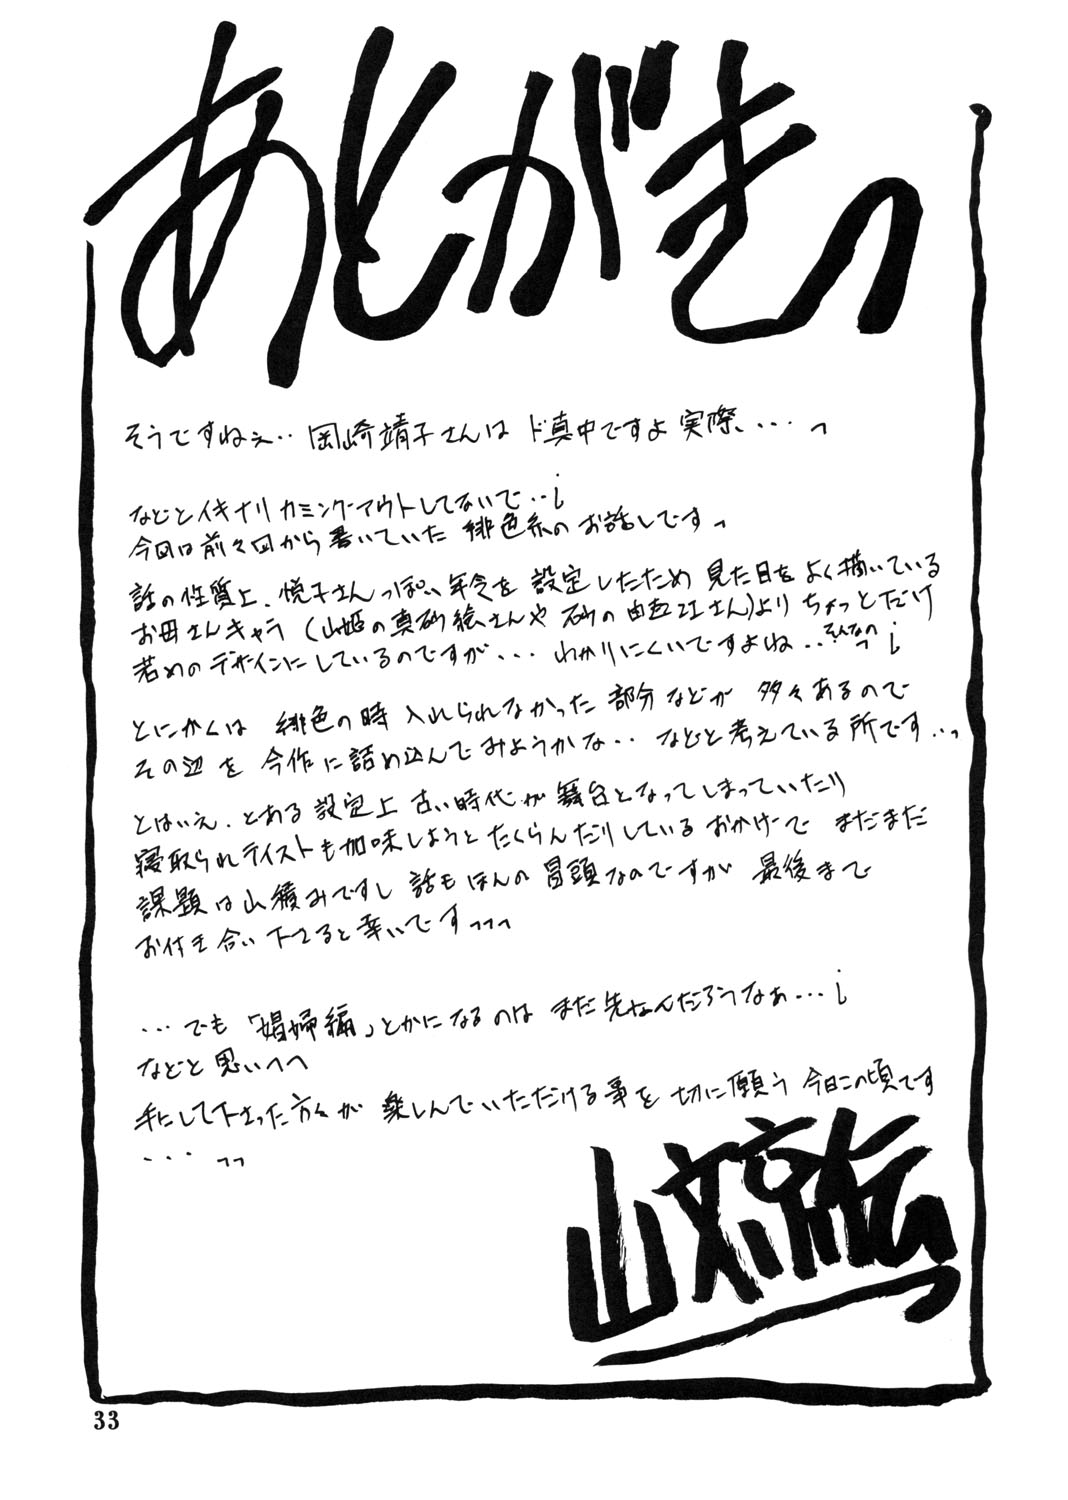 あとがきっ
そうですねぇ‥岡崎靖子さんは ド真中ですよ実際、‥‥っ
などとイキナリカミングアウトしてないで‥¡
今回は前々回から書いていた 緋色系のお話しですっ
話の性質上、悦子さんっぽい年令を 設定したため 見た目をよく描いている
お母さんキャラ(山姫の真砂絵さんや 砂の由〓江さん)より ちょっとだけ
若めのデザインにしているのですが‥‥ わかりにくいですよね‥そんなのっ¡
とにかくは 緋色の時 入れられなかった 部分などが 多々あるので
その辺を 今作に詰め込んでみようかな‥ などと考えている所です‥っ
とはいえ、とある設定上 古い時代が 舞台となってしまっていたり
寝取られテイストも加味しようと たくらんだりしているおかげで まだまだ
課題は山積みですし 話もほんの 冒頭なのですが 最後まで
お付き合い 下さると 幸いですっっっ
‥‥でも「娼婦編」とかになるのは まだ先なんだろうなぁ‥‥¡
などと思いつつ
手にして下さった方々が 楽しんでいただける事を 切に願う 今日この頃です
‥‥っっ
山文京伝
33